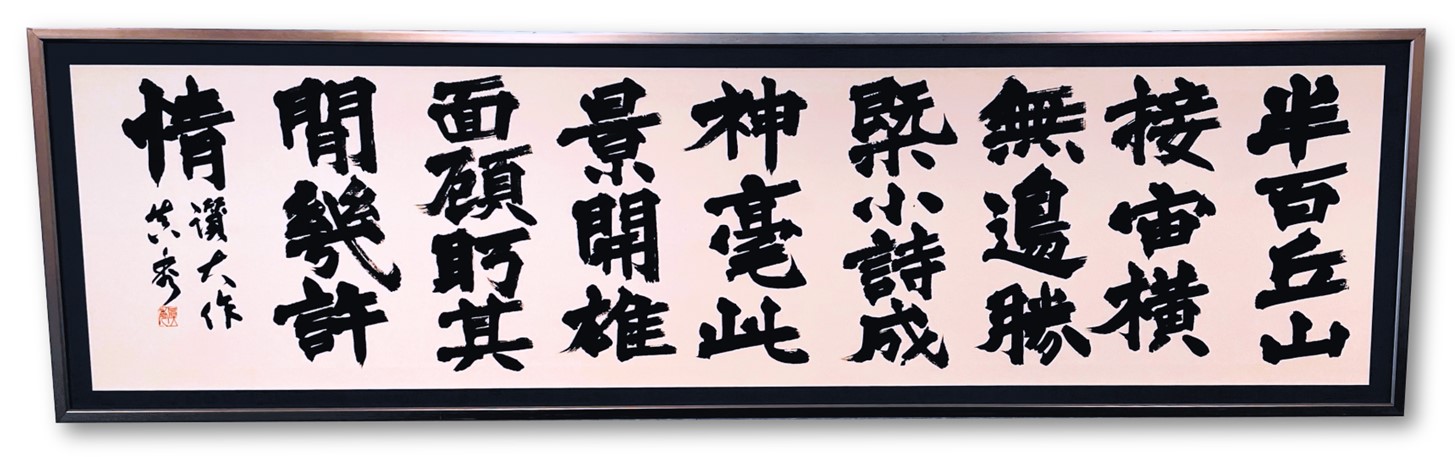 半百丘山
接宙横
無邊勝
槩小詩成
神毫此
景開雄
面顧眄其
閒幾許
情
讚大作
秀